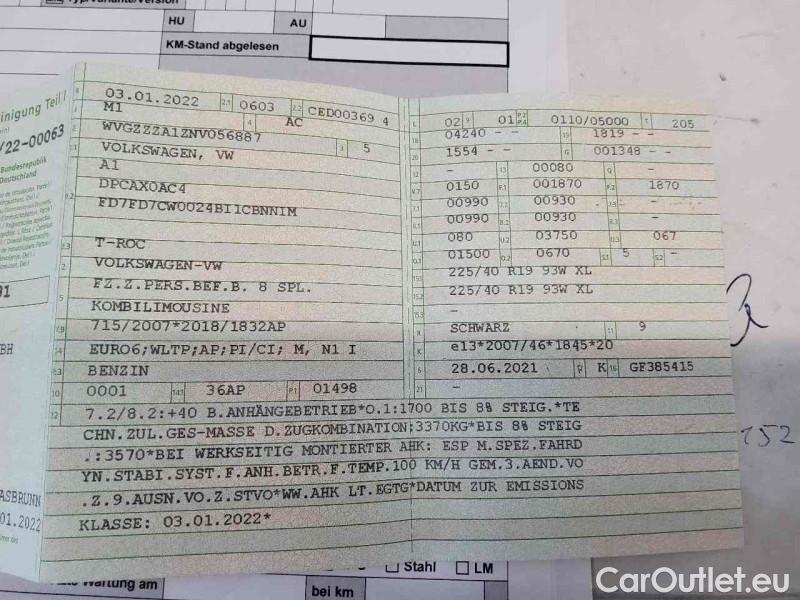 HU AU
KM-Stand abgelesen
einigung Teil I
/22-00063
Bundesrepublik
Deutschland
B 03.01.2022 2.1 0603 2.2 CED00369 4
M1 4 AC
WVGZZZA1ZNV056887 3 5
VOLKSWAGEN, VW
A1
DPCAX0AC4
FD7FD7CW0024BI1CBNNIM
T-ROC
VOLKSWAGEN-VW
FZ.Z.PERS.BEF.B. 8 SPL.
KOMBILIMOUSINE
715/2007*2018/1832AP
EURO6;WLTP;AP;PI/CI; M, N1 I
BENZIN
10 0001 14.1 36AP P.1 01498
L 02 9 01 P.2 P.4 0110/05000 T 205
18 04240 - - 19 1819 - -
20 1554 - - G 001348 - -
12 - 13 00080 Q -
V.7 0150 F.1 001870 F.2 1870
7.1 00990 7.2 00930 7.3 -
8.1 00990 8.2 00930 8.3 -
U.1 080 U.2 03750 U.3 067
O.1 01500 O.2 0670 S.1 5 S.2 -
15.1 225/40 R19 93W XL
15.2 225/40 R19 93W XL
15.3 -
R SCHWARZ 11 9
K e13*2007/46*1845*20
6 28.06.2021 17 K 16 GF385415
21 -
22 7.2/8.2:+40 B.ANHÄNGEBETRIEB*O.1:1700 BIS 8% STEIG.*TE
CHN.ZUL.GES-MASSE D.ZUGKOMBINATION;3370KG*BIS 8% STEIG
.:3570*BEI WERKSEITIG MONTIERTER AHK: ESP M.SPEZ.FAHRD
YN.STABI.SYST.F.ANH.BETR.F.TEMP.100 KM/H GEM.3.AEND.VO
.Z.9.AUSN.VO.Z.STVO*WW.AHK LT.EGTG*DATUM ZUR EMISSIONS
KLASSE: 03.01.2022*
BH
ASBRUNN
01.2022
152
Stahl LM
Wartung am bei km
CarOutlet.eu